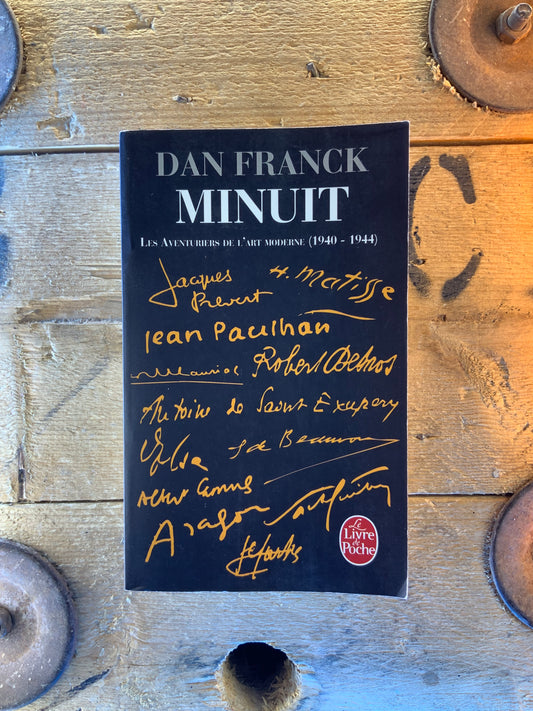 DAN FRANCK
MINUIT
LES AVENTURIERS DE L'ART MODERNE (1940 - 1944)
Jacques
Prévert
H. Matisse
Jean Paulhan
Mauriac
Robert Desnos
Antoine de Saint Exupéry
Elsa
S de Beauvoir
Albert Camus
Saint Exupéry
Aragon
JPSartre
Le
Livre
de
Poche